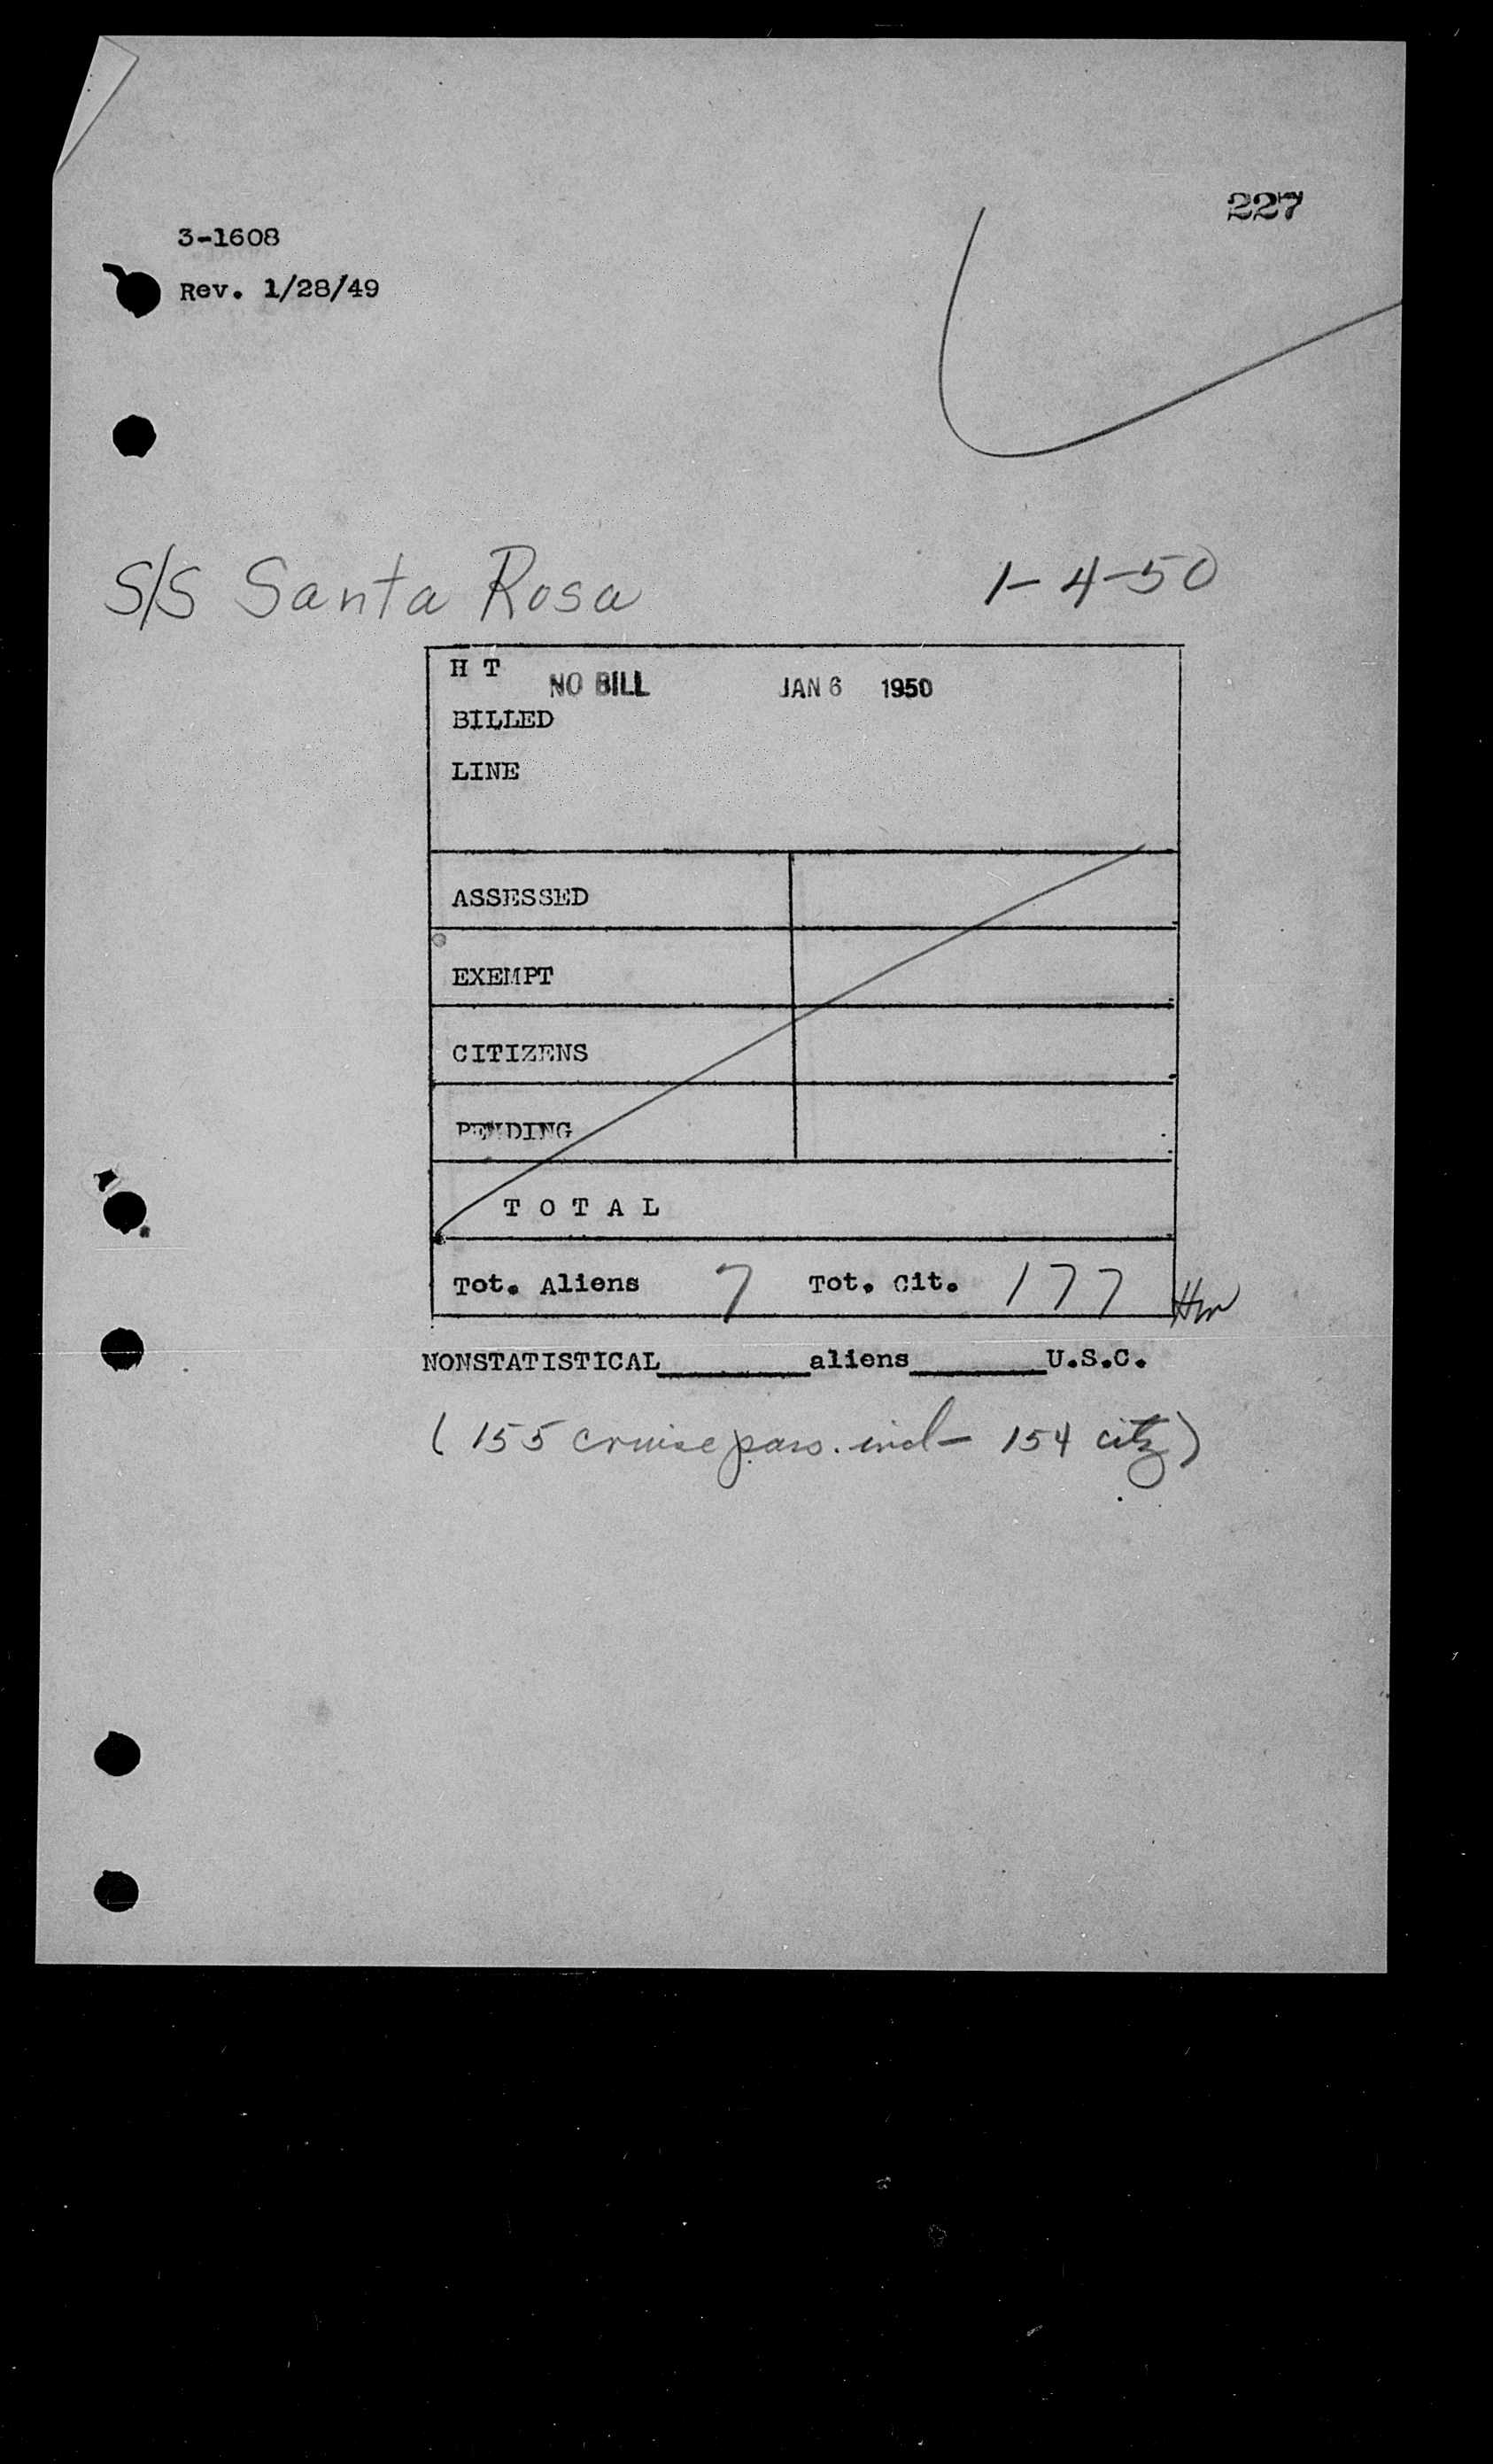 227
3-1608
Rev. 1/28/49
S/S Santa Rosa 1-4-50
H T NO BILL JAN 6 1950
BILLED
LINE
ASSESSED
EXEMPT
CITIZENS
PENDING
T O T A L
Tot. Aliens 7 Tot. Cit. 177
NONSTATISTICAL________aliens_______U.S.C.
(155 cruise pass. incl- 154 citz)